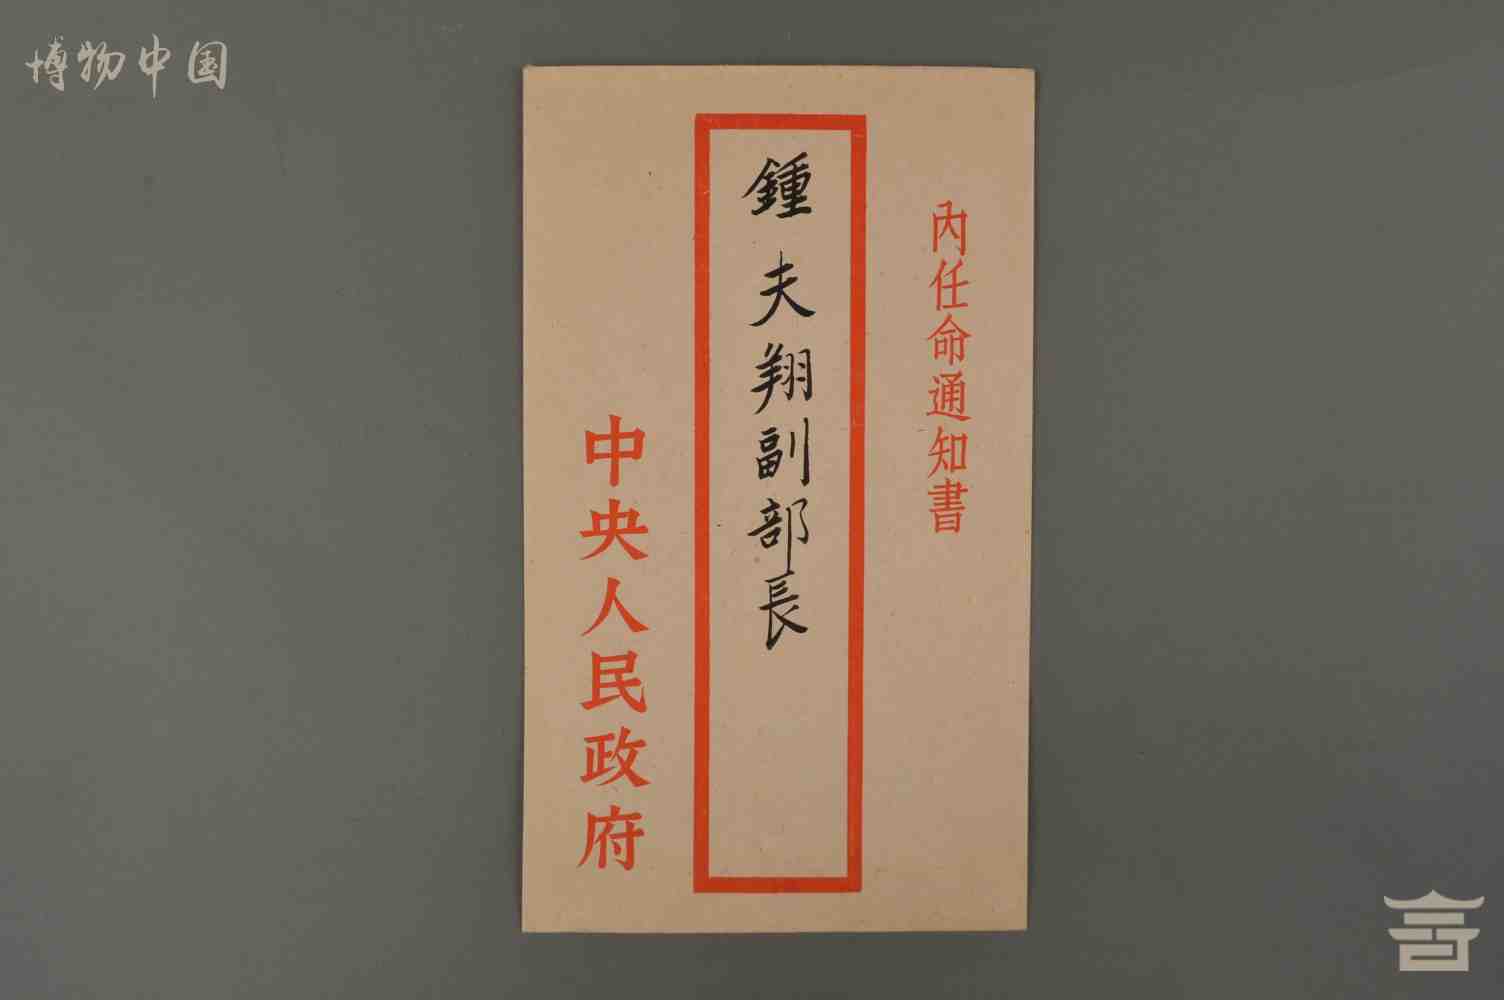 博物中国
內任命通知書
鍾夫翔副部長
中央人民政府